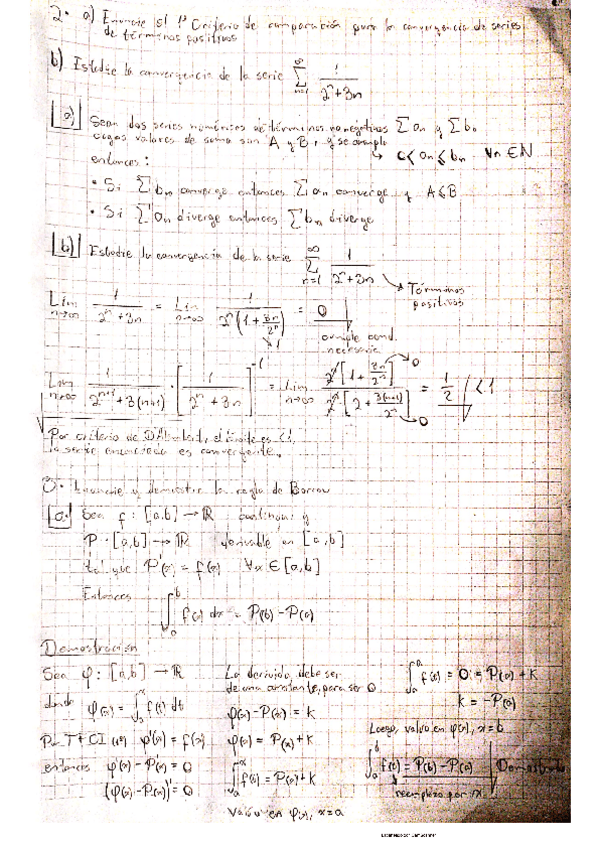 2. a) Enuncie el 1º Criterio de comparación para la convergencia de series
de términos positivos
b) Estudie la convergencia de la serie ∑_{n=1}^{∞} 1/(2^n+3n)
a) Sean dos series numéricas de términos no negativos ∑an y ∑bn
cuyos valores de suma son A y B, y se cumple
entonces: 0 ≤ an ≤ bn ∀n ∈ N
• Si ∑bn converge entonces ∑an converge y A≤B
• Si ∑an diverge entonces ∑bn diverge
b) Estudie la convergencia de la serie ∑_{n=1}^{∞} 1/(2^n+3n) → Términos
positivos
Lim_{n→∞} 1/(2^n+3n) = Lim_{n→∞} 1/(2^n(1+3n/2^n)) = 0
→1
cumple cond.
necesaria
Lim_{n→∞} 1/(2^{n+1}+3(n+1)) · [1/(2^n+3n)]^{-1} = Lim_{n→∞} 2^n[1+3n/2^n]/2^n[2+3(n+1)/2^n] = 1/2 < 1
Por criterio de D'Alembert, el límite es <1
la serie enunciada es convergente.
3. Enuncie y demuestre la regla de Barrow
a. Sea f: [a,b] → ℝ continua y
P: [a,b] → ℝ derivable en [a,b]
tal que P'(x) = f(x) ∀x ∈ [a,b]
Entonces
∫_a^b f(x) dx = P(b) - P(a)
Demostración
Sea φ: [a,b] → ℝ
donde φ(x) = ∫_a^x f(t) dt
Por TFCI φ'(x) = f(x)
entonces φ'(x) - P'(x) = 0
(φ(x) - P(x))' = 0
La derivida, debe ser
de una constante, para ser 0
φ(x) - P(x) = k
φ(x) = P(x) + k
∫_a^x f(t) = P(x) + k
Valúo en φ(x), x=a
∫_a^a f(t) = 0 = P(a) + k
k = -P(a)
Luego, valúo en φ(x), x = b
∫_a^b f(t) = P(b) - P(a) Demostrado
reemplazo por